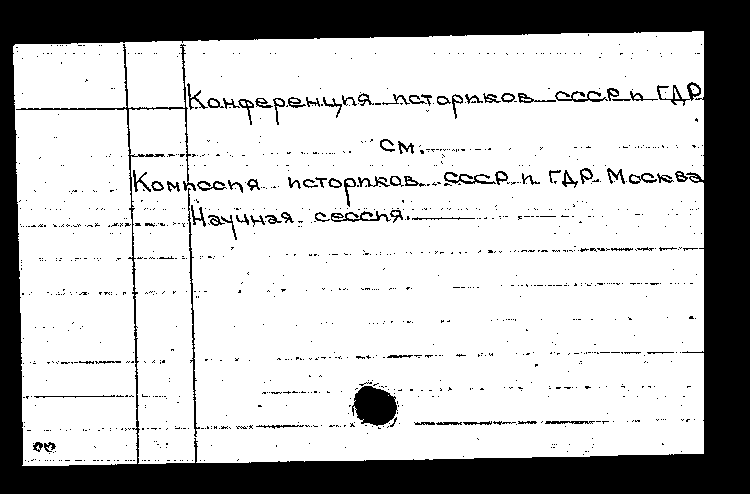 Конференция историков СССР и ГДР
см.
Комиссия историков СССР и ГДР Москва
Научная сессия.